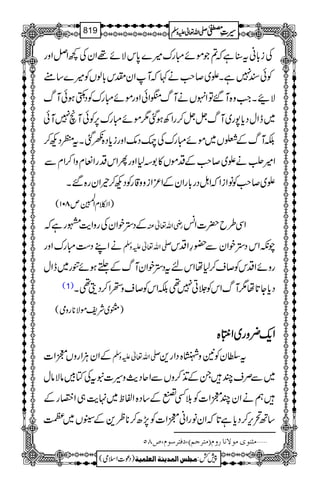 سیرتِ مصطفیٰ صلی اللہ تعالیٰ علیہ وسلم 819
کی زبانی یہ سنا ہے کہ تم جو موئے مبارک میرے پاس لائے تھے ان کی کچھ اصل اور
کوئی سند نہیں ہے۔ علوی صاحب نے کہا کہ آپ ان مقدس بالوں کو میرے سامنے
لایئے۔ جب وہ آ گئے تو انہوں نے آگ منگوائی اور موئے مبارک کو دہکتی ہوئی آگ
میں ڈال دیا پوری آگ جل جل کر راکھ ہو گئی مگر موئے مبارک پر کوئی آنچ نہیں آئی
بلکہ آگ کے شعلوں میں موئے مبارک کی چمک دمک اور زیادہ نکھر گئی۔ یہ منظر دیکھ کر
امیر حلب نے علوی صاحب کے قدموں کا بوسہ لیا اور پھر اس قدر انعام و اکرام سے
علوی صاحب کو نوازا کہ اہل دربار ان کے اعزاز و وقار کو دیکھ کر حیران رہ گئے۔
(الکلام المبین ص۱۰۸)
اسی طرح حضرت انس رضی اللہ تعالیٰ عنہ کے دسترخوان کی روایت مشہور ہے کہ
چونکہ اس دسترخوان سے حضور اقدس صلی اللہ تعالیٰ علیہ وسلم نے اپنے دست مبارک اور
روئے اقدس کو صاف کر لیا تھا اس لئے یہ دسترخوان آگ کے جلتے ہوئے تنور میں ڈال
دیا جاتا تھا مگر آگ اس کو جلاتی نہیں تھی بلکہ اس کو صاف و ستھرا کر دیتی تھی۔ (1)
(مثنوی شریف مولانا رومی)
ایک ضروری انتباہ
یہ سلطان کونین و شہنشاہ دارین صلی اللہ تعالیٰ علیہ وسلم کے ان ہزاروں معجزات
میں سے صرف چند ہیں جن کے تذکروں سے احادیث و سیرت نبویہ کی کتابیں مالا مال
ہیں ہم نے ان چند معجزات کو بلا کسی تصنع کے سادہ الفاظ میں نہایت ہی اختصار کے
ساتھ تحریر کر دیا ہے تا کہ ان نورانی معجزات کو پڑھ کر ناظرین کے سینوں میں عظمت
مثنوی مولانا روم(مترجم)،دفتر سوم،ص۵۸
پیش کش: مجلس المدينة العلمية (دعوت اسلامی)